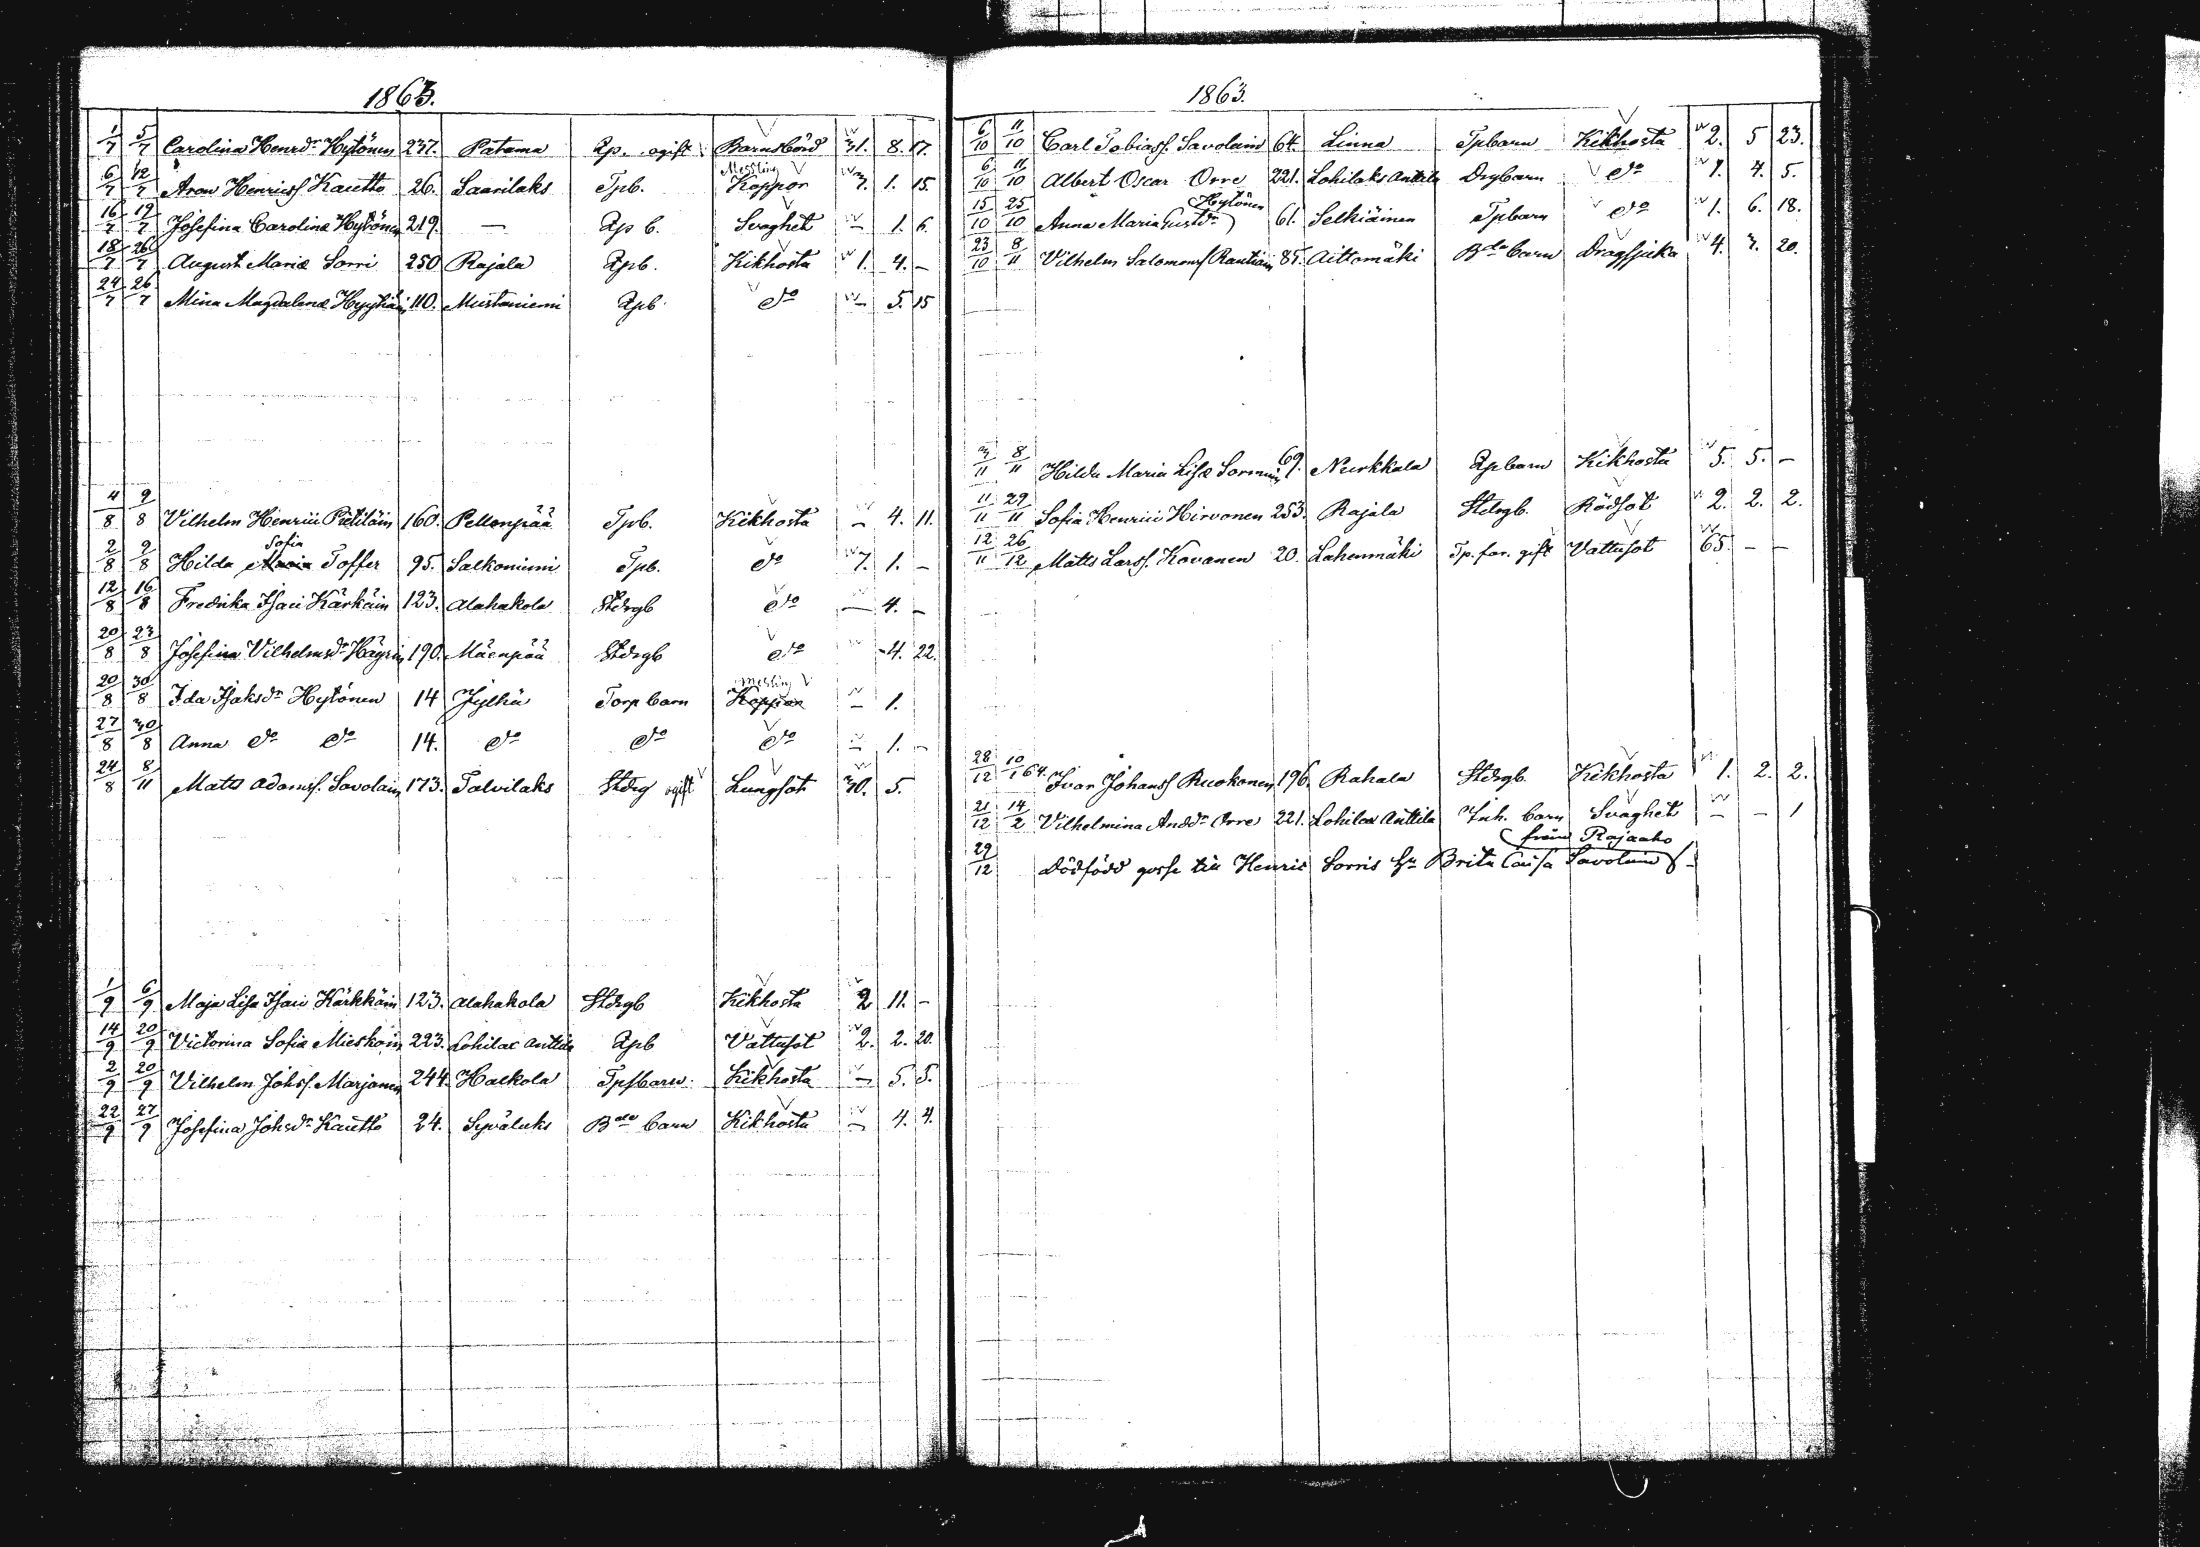 1863.
1/7 5/7 Carolina Henrdr Hytönen 237. Patama Ap. ogift Barnsbörd 31. 8. 17.
6/7 12/7 Aron Henricss. Kautto 26. Saarilaks Tpb. Messling Koppor 7. 1. 15.
16/7 19/7 Josefina Carolina Hytönen 219. — Ap b. Svaghet — 1. 6.
18/7 26/7 August Maria Sorri 250 Rajala Apb. Kikhosta 1. 4. —
24/7 26/7 Mina Magdalena Hyytiäin 110. Mustaniemi Apb. do — 5. 15
4/8 9/8 Vilhelm Henrici Pietiläin 160. Pellonpää Tpb. Kikhosta — 4. 11.
2/8 9/8 Hilda Sofia Toffer 95. Salkoniemi Tpb. do 7. 1. —
12/8 16/8 Fredrika Isaci Kärkäin 123. Alahakola Stdrgb do — 4. —
20/8 23/8 Josefina Vilhelmsdr Häyrin 190. Mäenpää Stdrgb do - 4. 22.
20/8 30/8 Ida Isaksdr Hytönen 14 Jylhä Torp barn Messling Koppor — 1.
27/8 30/8 Anna do do 14. do do do — 1. —
24/8 8/11 Matts Adamss. Savolain 173. Talvilaks Stdrg ogift Lungsot 30. 5.
1/9 6/9 Maja Lisa Isaci Kärkkäin 123. Alahakola Stdrgb Kikhosta 2 11. —
14/9 20/9 Victorina Sofia Mieskoin 223. Lohilax Anttila Apb Vattusot 2. 2. 20.
2/9 20/9 Vilhelm Johss. Marjanen 244. Halkola Tpsbarn. Kikhosta — 5. 5.
22/9 27/9 Josefina Johsdr Kautto 24. Syväluks Bde barn Kikhosta — 4. 4.
1863.
6/10 11/10 Carl Tobiass. Savolain 64. Linna Tpbarn Kikhosta 2. 5 23.
6/10 11/10 Albert Oscar Orre 221. Lohilaks Anttila Drgbarn do 1. 4. 5.
15/10 25/10 Anna Maria Gustdr Hytönen 61. Selkiäinen Tpbarn do 1. 6. 18.
23/10 8/11 Vilhelm Salomonss Rautiain 85. Aittomäki Bde barn Dragsjuka 4. 7. 20.
3/11 8/11 Hilda Maria Lisa Sormuin 69. Nurkkala Apbarn Kikhosta 5. 5. —
11/11 29/11 Sofia Henrici Hirvonen 253. Rajala Stdrgb. Rödsot 2. 2. 2.
12/11 26/12 Matts Larss. Kovanen 20. Lahenmäki Tp. far. gift Vattusot 65. — —
28/12 10/1 64. Ivar Johanss Ruokonen 196. Rahala Stdrgb. Kikhosta 1. 2. 2.
21/12 14/2 Vilhelmina Anddr Orre 221. Lohilax Anttila Inh. barn Svaghet — — 1
29/12 dödfödd gosse till Henric Sorris hu Brita Caisa Savolain
från Rajaaho